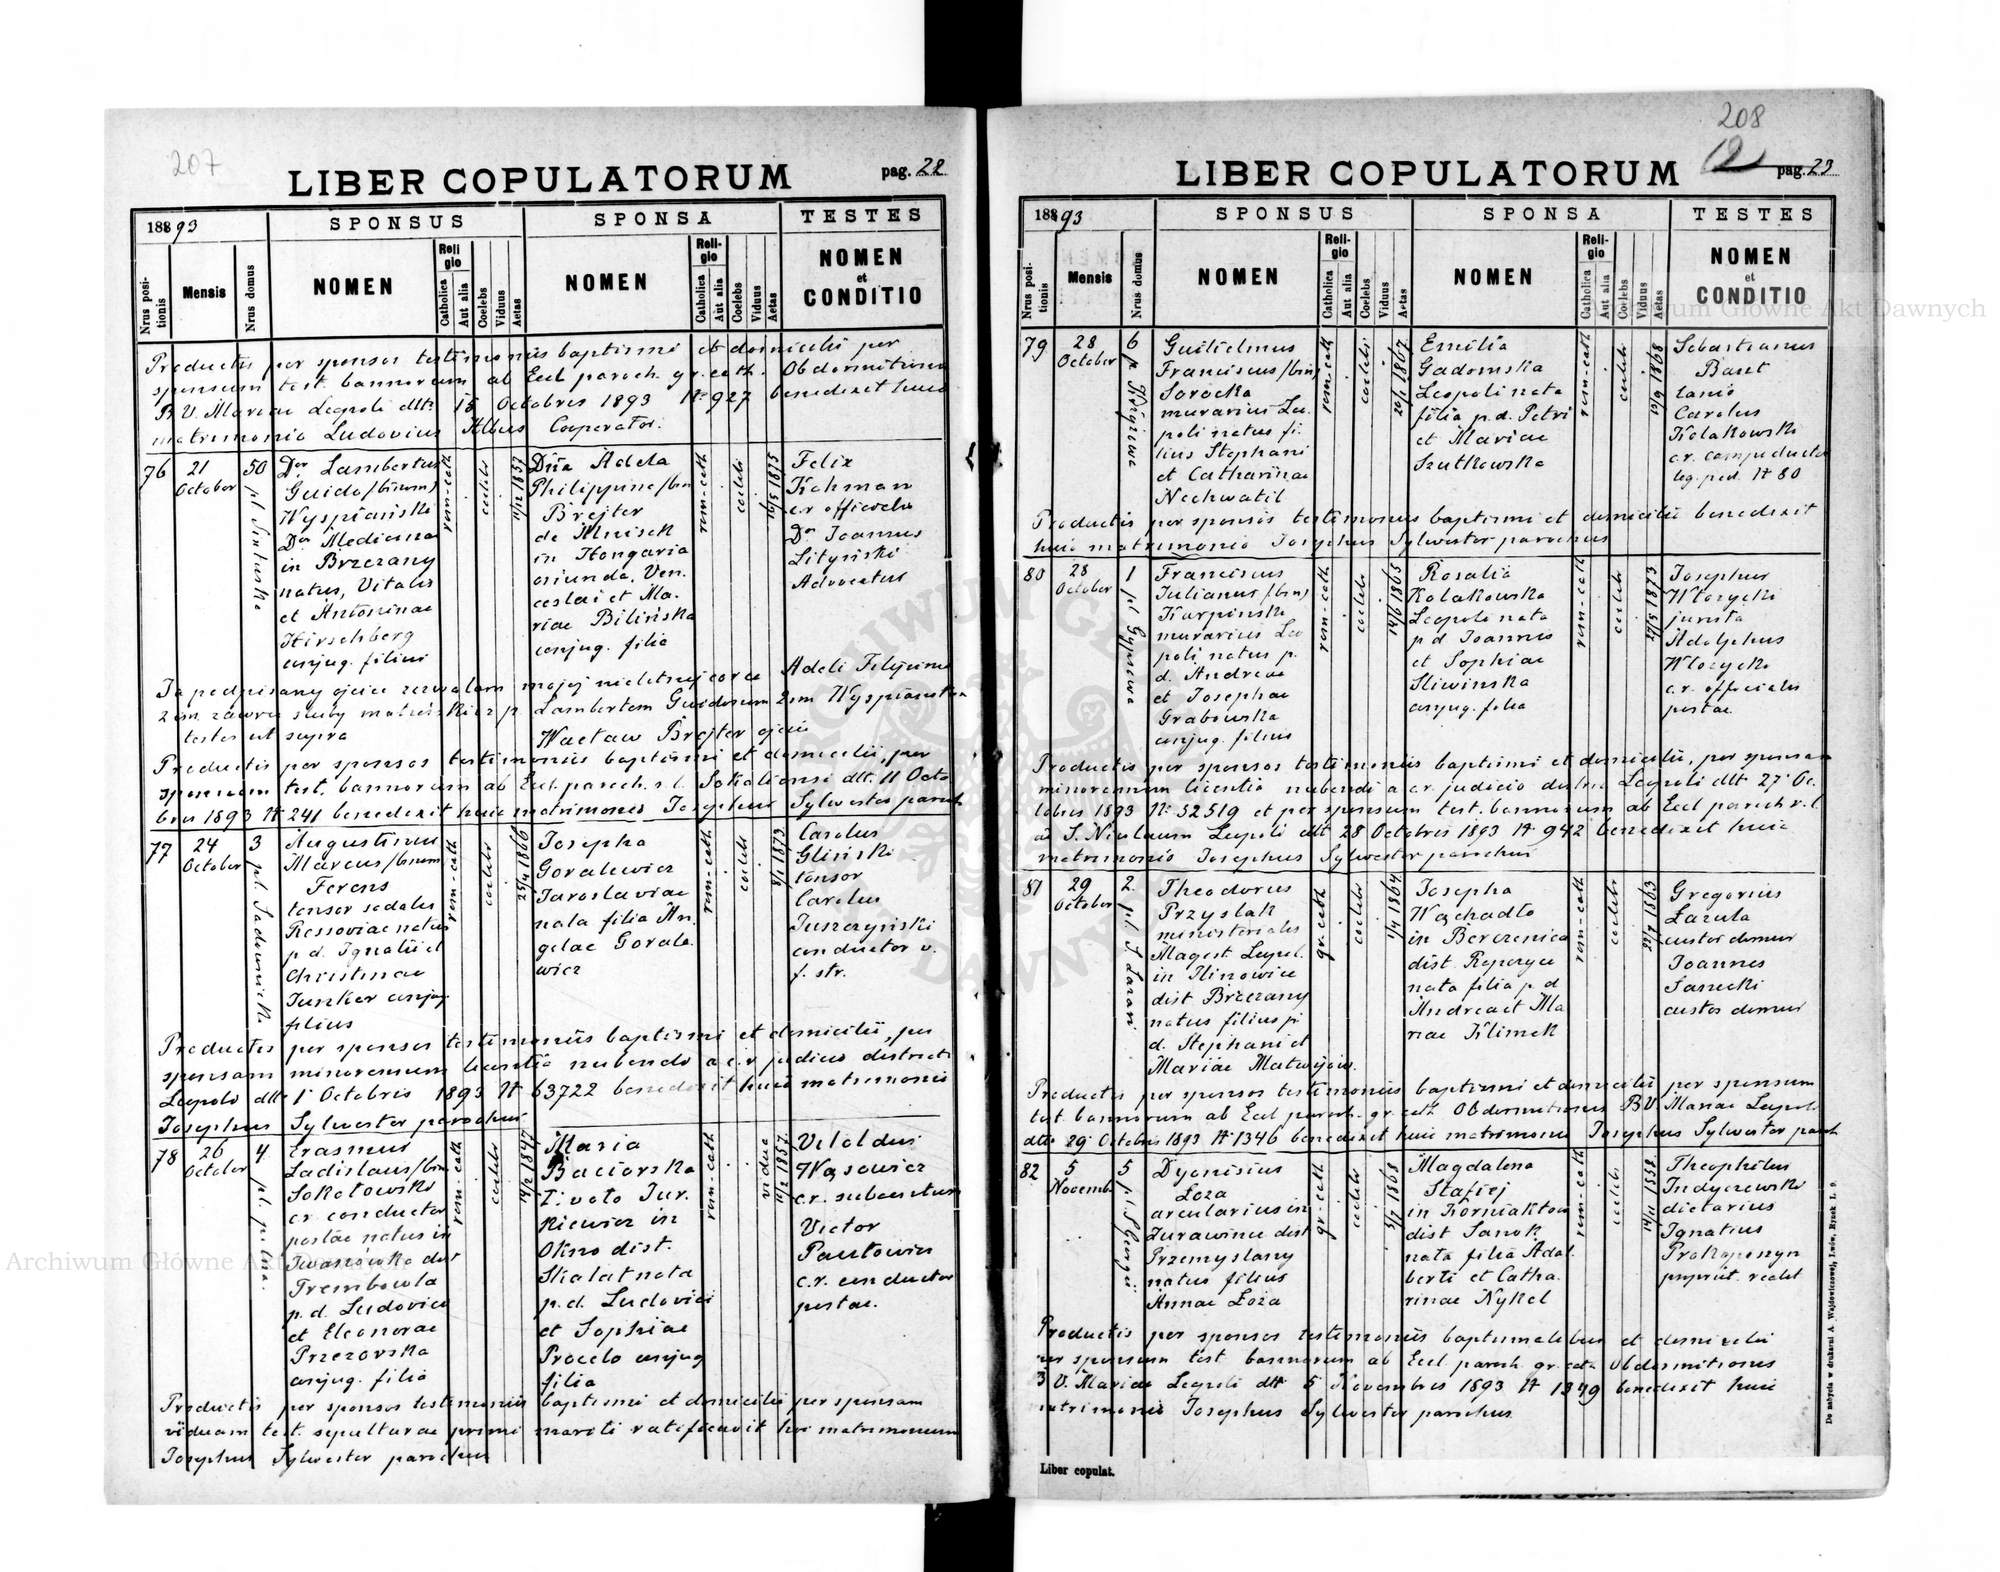 207
LIBER COPULATORUM
pag. 22
1893
SPONSUS
SPONSA
TESTES
Nrus positionis
Mensis
Nrus domus
NOMEN
Religio
Catholica
Aut alia
Coelebs
Viduus
Aetas
NOMEN
Religio
Catholica
Aut alia
Coelebs
Viduus
Aetas
NOMEN
et
CONDITIO
Productis per sponsos testimoniis baptismi et domicilii per
sponsum test. bannorum ab Eccl. paroch. gr. cath. Obdormitionis
B. V. Mariae Leopoli dtto 15 Octobris 1893 No 927 benedixit huic
matrimonio Ludovicus Albus Cooperator.
76
21
October
50
Dor Lambertus
Guido /binom/
Wyspiański
Dor Medicinae
in Brzezany
natus, Vitalis
et Antoninae
Hirschberg
conjug. filius
rom-cath
coelebs
11/12 1857
Dna Adela
Philippine /bin
Brejter
de Mnisek
in Hongaria
oriunda, Ven.
ceslai et Ma.
riae Bilińska
conjug. filia
rom-cath
coelebs
16/5 1875
Felix
Kohman
c.r. officialis
Dor Joannes
Lityński
Advocatus
Ja podpisany ojciec zezwalam mojej nieletniej corce Adeli Filipinie
2 im. zawrzeć śluby małżeńskie z p. Lambertem Guidonem 2 im Wyspiańskim
testes ut supra
Wacław Brejter ojciec
Productis per sponsos testimoniis baptismi et domicilii, per
sponsum test. bannorum ab Eccl. paroch. r. l. dtt. 11 Octo
bris 1893 N 241 benedixit huic matrimonio Josephus Sylwester paroch
77
24
October
3
Augustinus
Marcus /binom
Ferens
tonsor sodalis
Ressoviae natus
p. d. Ignatii et
Christinae
Junker conjug.
filius
rom-cath
coelebs
25/4 1866
Josepha
Goralewicz
Jaroslaviae
nata filia An.
gelae Gorale.
wicz
rom-cath
coelebs
8/1 1873
Carolus
Gliński
tonsor
Carolus
Juszczyński
conductor v.
f. str.
Productis per sponsos testimoniis baptismi et domicilii, per
sponsam minorennem licentia nubendi a c.r. judicio districti
Leopoli dtto 1 Octobris 1893 N 63722 benedixit huic matrimonio
Josephus Sylwester parochus
78
26
October
4
Erasmus
Ladislaus /bin
Sokołowski
c.r. conductor
postae natus in
Iwanówka dist
Trembowla
p. d. Ludovici
et Eleonorae
Przezorska
conjug. filia
rom-cath
coelebs
Maria
Baciorska
I. voto Jur.
kiewicz in
Okno dist.
Skalat nata
p. d. Ludovici
et Sophiae
Procelo conjug
filia
rom-cath
vidua
12/2 1857
Vitoldus
Wąsowicz
c.r.
Victor
Pawłowicz
c.r. conductor
postae.
Productis per sponsos testimoniis baptismi et domicilii per sponsam
viduam test. sepulturae primi mariti ratificavit hoc matrimonium
Josephus Sylwester parochus
208
LIBER COPULATORUM
pag. 23
1893
SPONSUS
SPONSA
TESTES
Nrus positionis
Mensis
Nrus domus
NOMEN
Religio
Catholica
Aut alia
Coelebs
Viduus
Aetas
NOMEN
Religio
Catholica
Aut alia
Coelebs
Viduus
Aetas
NOMEN
et
CONDITIO
79
28
October
6
Guilielmus
Franciscus /bin/
Sorocka
murarius Leo
poli natus fi.
lius Stephani
et Catharinae
Nechwatil
rom-cath
coelebs
Emilia
Gadomska
Leopoli nata
filia p. d. Petri
et Mariae
Szutkowska
rom-cath
coelebs
Sebastianus
Baset
lanio
Carolus
Kolakowski
c.r.
leg. ped. N 80
Productis per sponsos testimoniis baptismi et domicilii benedixit
huic matrimonio Josephus Sylwester parochus
80
28
October
1
Franciscus
Julianus /bin/
Karpiński
murarius Leo
poli natus p.
d. Andreae
et Josephae
Grabowska
conjug. filius
rom-cath
coelebs
Rosalia
Kolakowska
Leopoli nata
p. d Joannis
et Sophiae
Sliwinska
conjug. filia
rom-cath
coelebs
27/5 1873
Josephus
Wlozycki
jurista
Adolphus
Wlozycki
c.r. officialis
postae.
Productis per sponsos testimoniis baptismi et domicilii, per sponsam
minorennem licentia nubendi a c.r. judicio distric Leopoli dtt 27 Oc.
tobris 1893 N. 52519 et per sponsum test. bannorum ab Eccl paroch r. l.
ad S. Nicolaum Leopoli dtt 28 Octobris 1893 N 942 benedixit huic
matrimonio Josephus Sylwester parochus
81
29
October
2
Theodorus
Przystak
ministerialis
Magist. Leopol.
in Hinowice
dist Brzezany
natus filius p.
d. Stephani et
Mariae Matwijciw.
gr. cath
coelebs
1/4 1864
Josepha
Wachadło
in Berezenica
dist. Ropczyce
nata filia p. d
Andreae et Ma
riae Klimek
rom-cath
coelebs
22/7 1863
Gregorius
Łazuta
custos domus
Joannes
Sanecki
custos domus
Productis per sponsos testimoniis baptismi et domicilii per sponsum
test. bannorum ab Eccl. paroch. gr. cath. Obdormitionis B.V. Mariae Leopoli
dtto 29 Octobris 1893 N 1346 benedixit huic matrimonio Josephus Sylwester paroch
82
5
Novemb.
5
Dyonisius
Łoza
arcularius in
Żurawince dist
Przemyslany
natus filius
Annae Łoza
gr. cath
coelebs
5/7 1868
Magdalena
Stafiej
in Korniaktow
dist Sanok
nata filia Adal.
berti et Catha.
rinae Nykel
rom-cath
coelebs
14/11 1858
Theophilus
Indyczewski
dietarius
Ignatius
Prokopowyn
propriet. realit
Productis per sponsos testimoniis baptismalibus et domicilii
per sponsum test bannorum ab Eccl. paroch. gr. cath Obdormitionis
B V. Mariae Leopoli dtt 5 Novembris 1893 N 1379 benedixit huic
matrimonio Josephus Sylwester parochus
Liber copulat.
Do nabycia w drukarni A. Wajdowiczowej, Lwów, Rynek l. 9.
Archiwum Główne Akt Dawnych
Archiwum Główne Akt Dawnych
ARCHIWUM GŁÓWNE AKT DAWNYCH